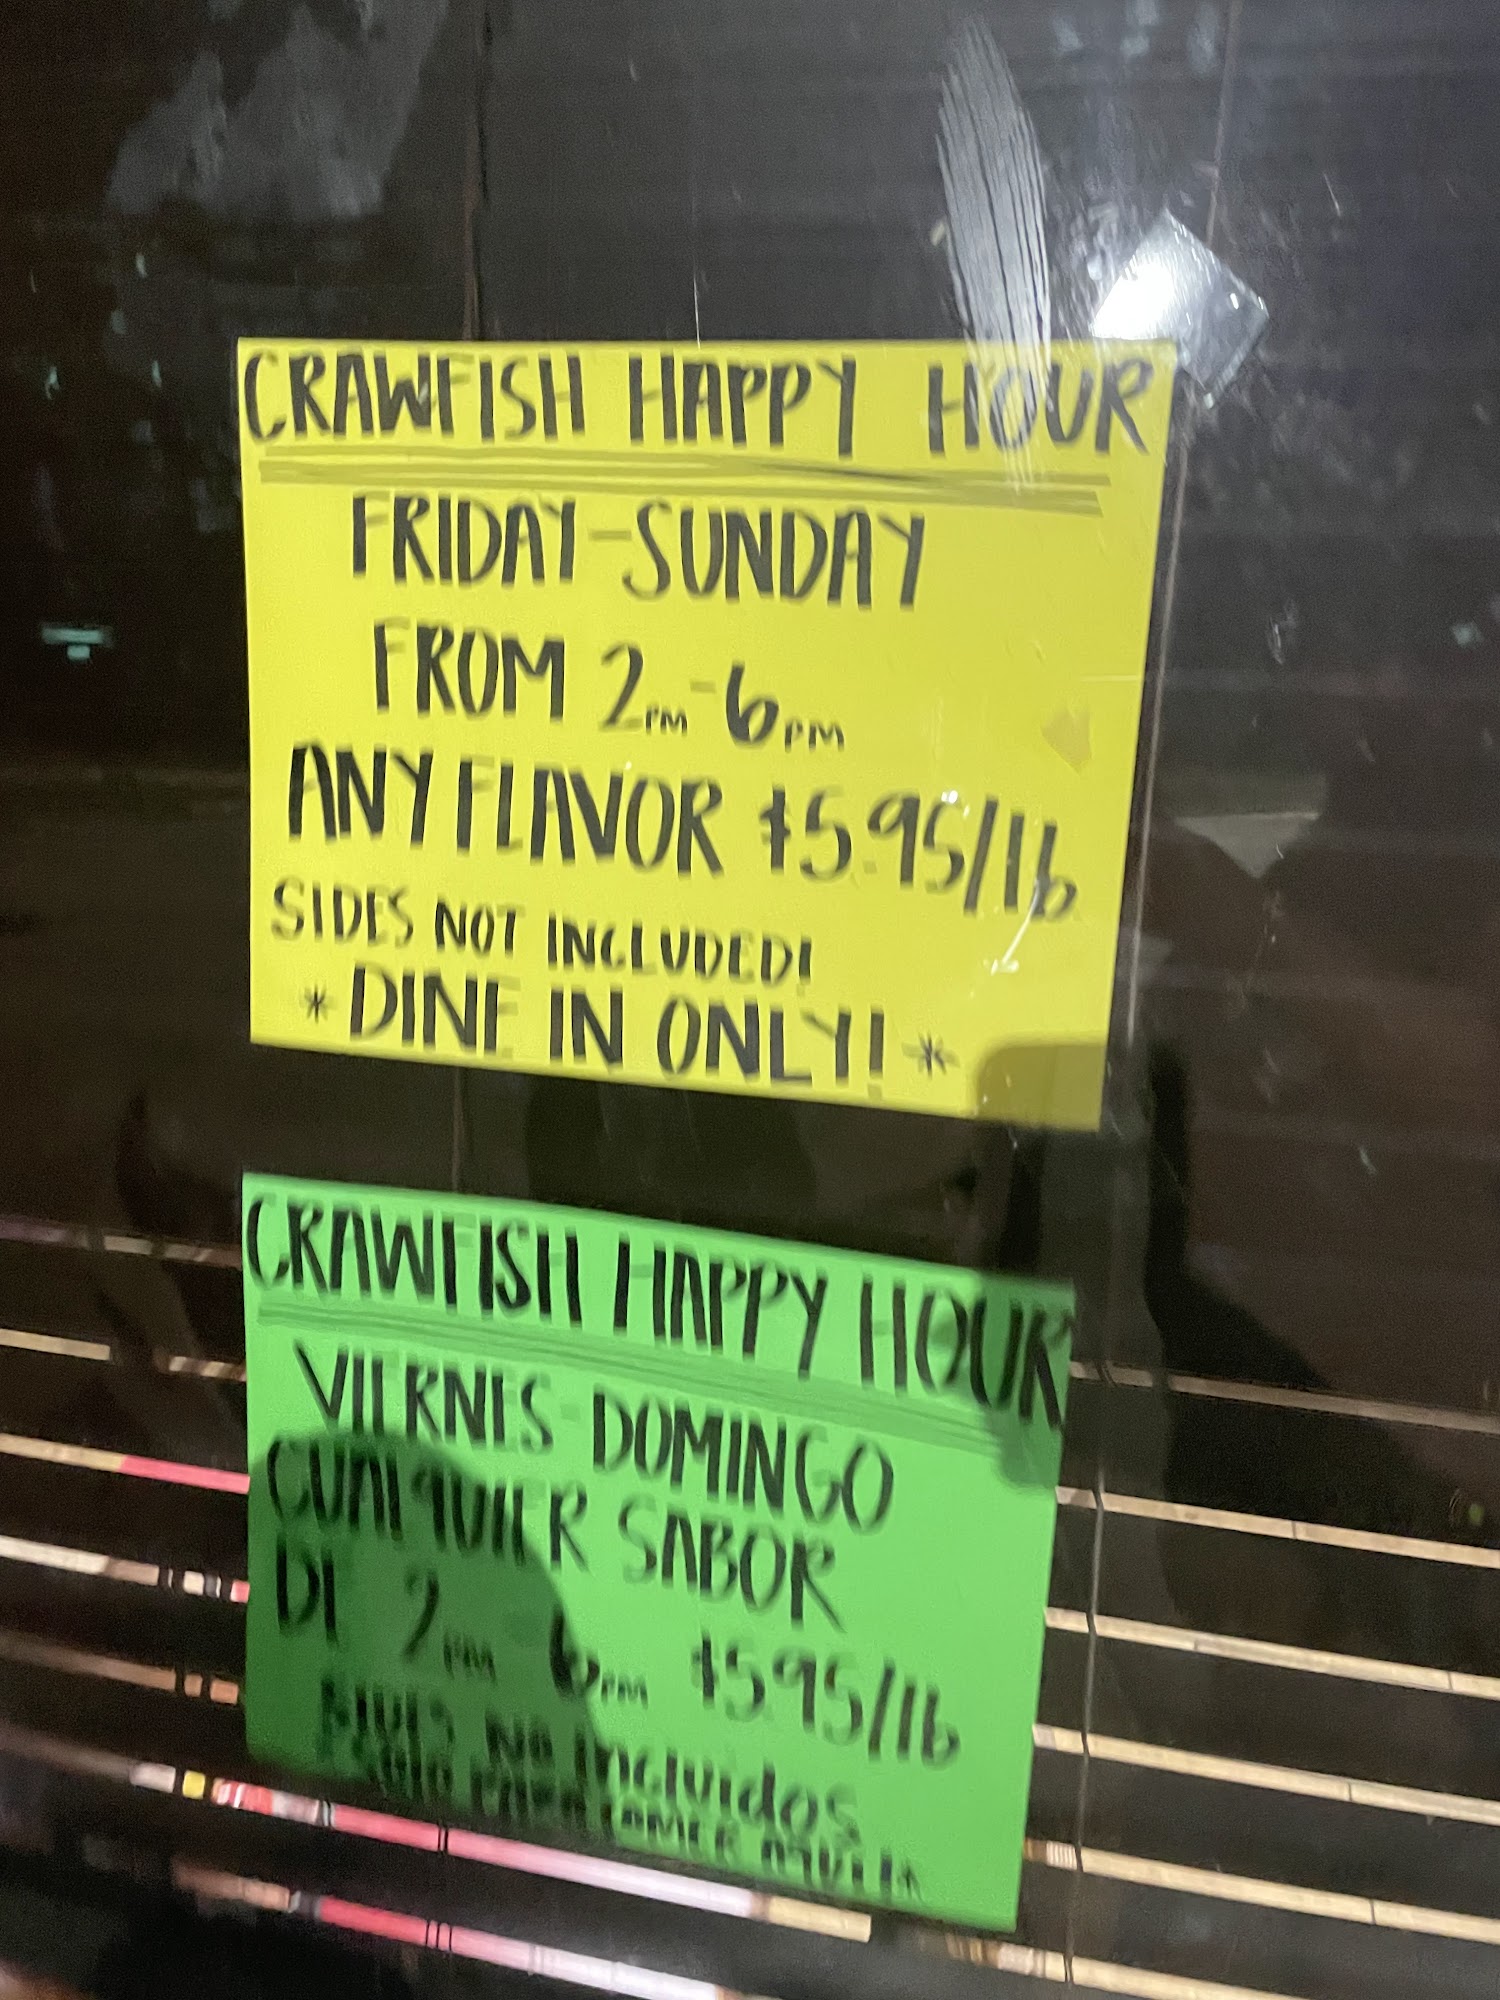 CRAWFISH HAPPY HOUR
FRIDAY-SUNDAY
FROM 2PM-6PM
ANY FLAVOR $5.95/lb
SIDES NOT INCLUDED!
* DINE IN ONLY! *
CRAWFISH HAPPY HOUR
VIERNES-DOMINGO
CUALQUIER SABOR
DE 2PM-6PM $5.95/lb
NO INCLUIDOS
PARA COMER AQUI *